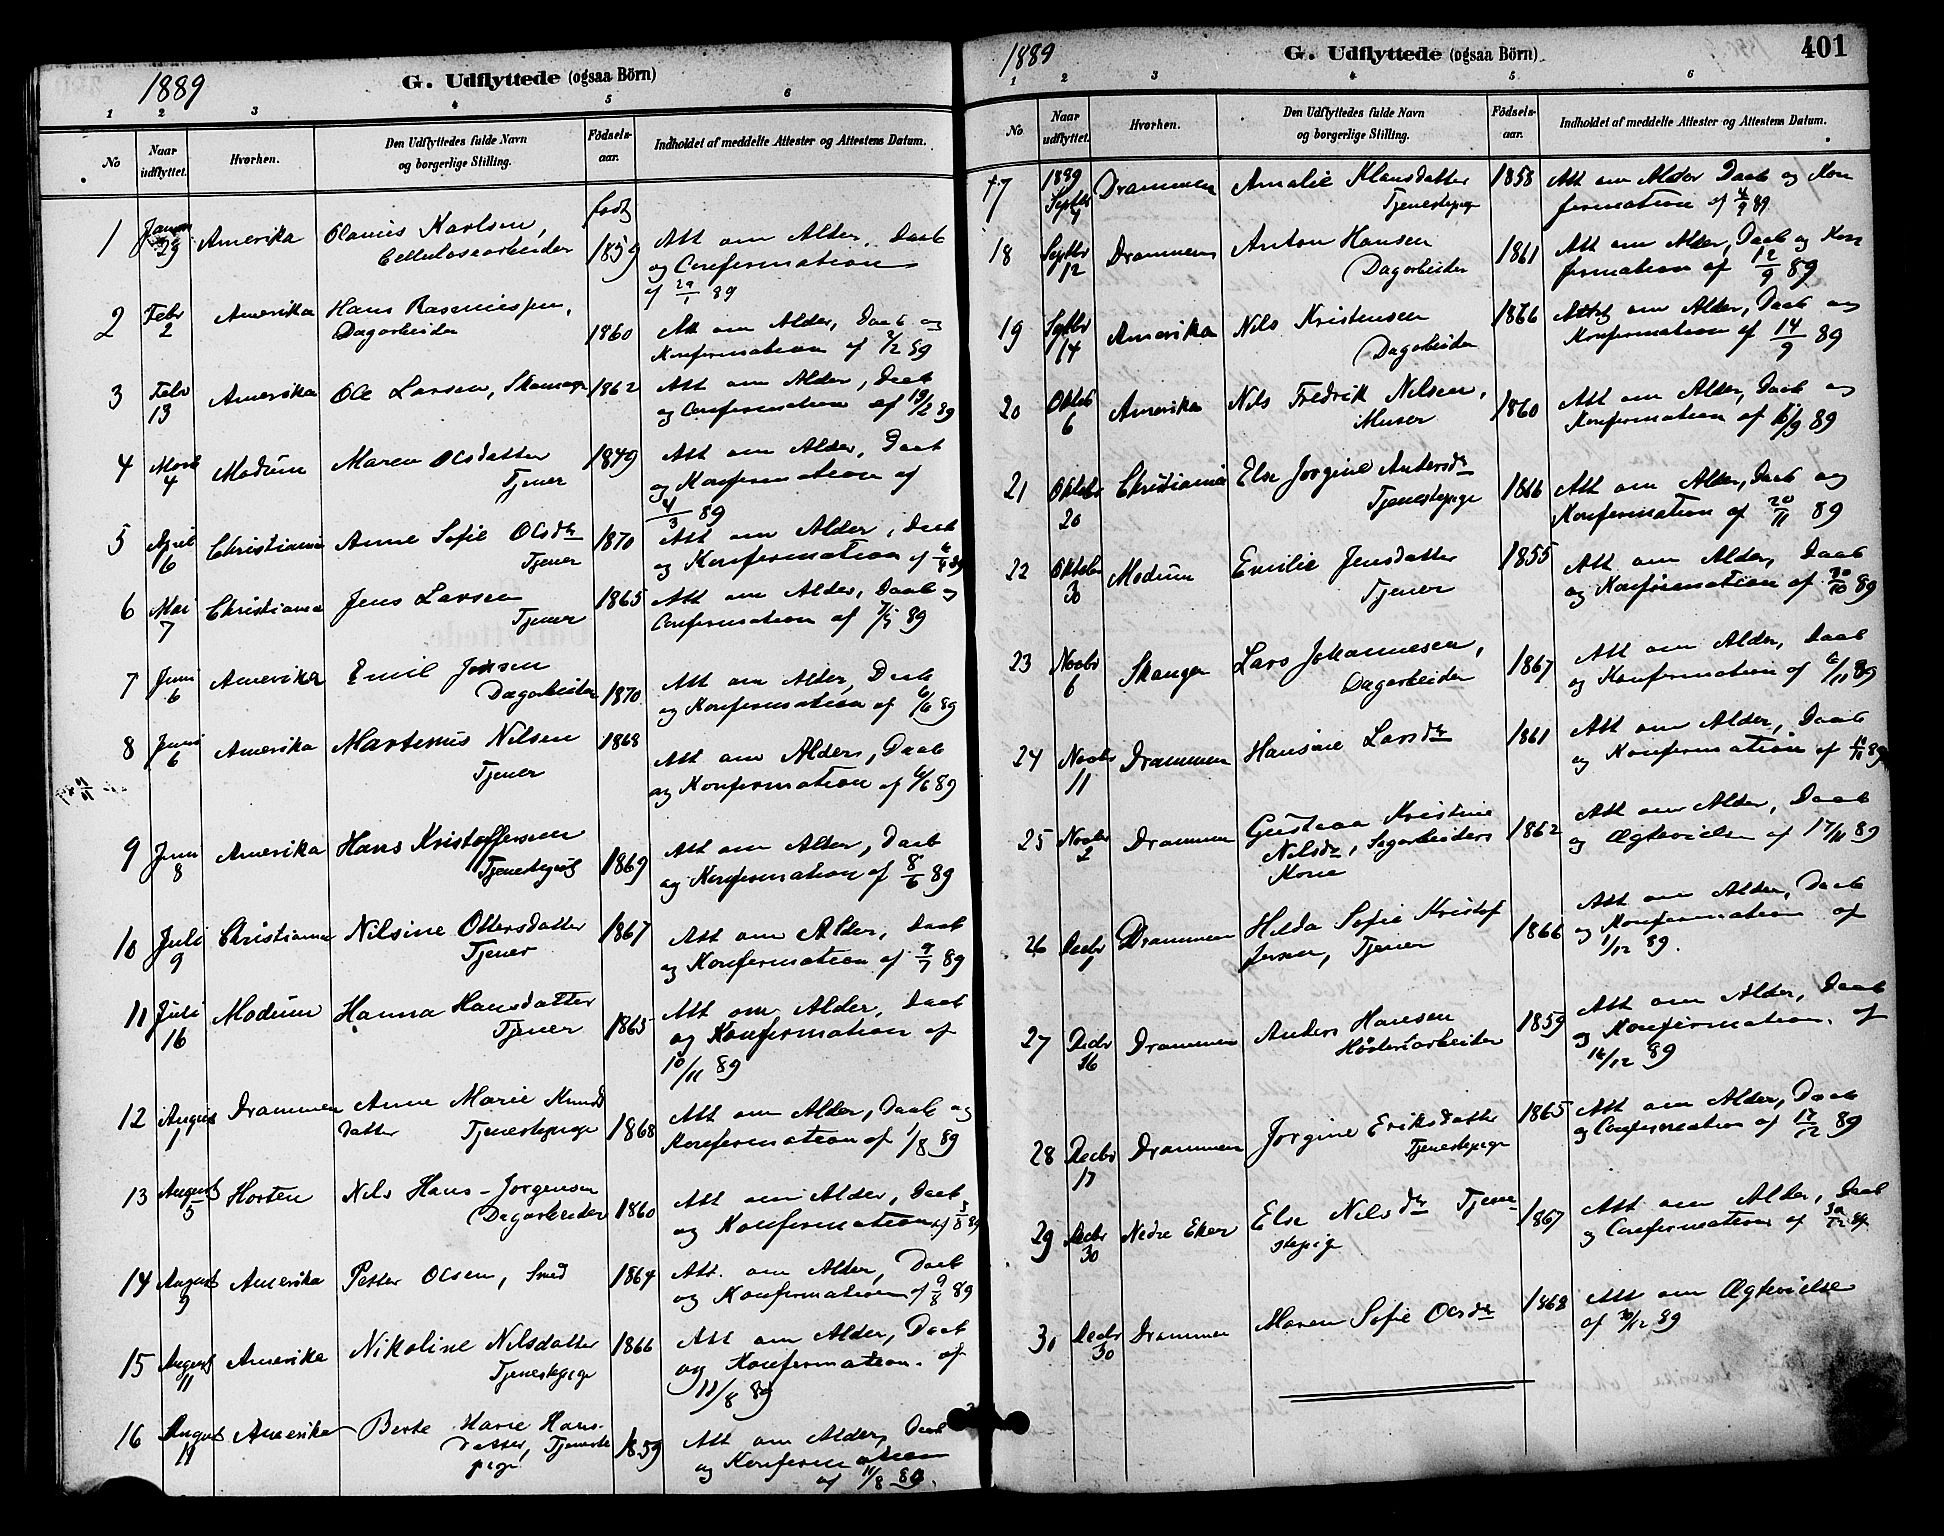 1889
G. Udflyttede (ogsaa Börn)
1 2 3 4 5 6
No
Naar udflyttet.
Hvorhen.
Den Udflyttedes fulde Navn
og borgerlige Stilling.
Födsels-
aar.
Indholdet af meddelte Attester og Attestens Datum.
født
1 29 Amerika Olaves Karlsen, Att om Alder, Daab
Cellulosearbeider 1859 og Confermation
af 29/1 89
2 Febr 2 Amerika Hans Rasmussen,
Dagarbeider 1860 Att om Alder, Daab og
Konfermation af 2/2 89
3 Febr 13 Amerika Ole Larsen, 1862 Att om Alder, Daab
og Confermation af 13/2 89
4 4 Modum Maren Olsdatter 1849 Att om Alder, Daab
Tjener og Konfermation af
4/3 89
5 April 6 Christiania Anne Sofie Olsdtr 1870 Att om Alder, Daab
Tjener og Konfermation af 89
6 Mai 7 Christiania Jens Larsen 1865 Att om Alder, Daab og
Tjener Confermation af 7/5 89
7 Juni 6 Amerika Emil Jensen
Dagarbeider 1870 Att om Alder, Daab
og Konfermation af 6/6 89
8 Juni 6 Amerika Martinus Nilsen 1868
Tjener Att om Alder, Daab
og Konfermation af 6/6 89
9 Juni 8 Amerika Hans Kristoffersen Att om Alder, Daab
Tjenestegut 1869 og Konfermation af 8/6 89
10 Juli 9 Christiania Nilsine Ottersdatter 1867 Att om Alder, Daab
Tjener og Konfermation af 9/7 89
11 Juli 16 Modum Hanna Hansdatter Att om Alder, Daab
Tjener 1865 og Konfermation af
10/11 89
12 August 1 Drammen Anne Marie Knuds
datter Tjenestepige 1868 Att om Alder, Daab og
Konfermation af 1/8 89
13 August 5 Horten Nils Hans-Jorgensen
Dagarbeider 1860 Att om Alder, Daab
og Konfermation af 89
14 August 9 Amerika Petter Olsen, Smed 1864 Att. om Alder, Daab
og Konfermation af 9/8 89
15 August 11 Amerika Nikoline Nilsdatter 1866 Att om Alder, Daab
Tjenestepige og Konfermation. af
11/8 89
16 August 11 Amerika Berte Marie Hans-
datter, Tjeneste
pige 1859 Att om Alder, Daab
og Konfermation
af 11/8 89.
1889
G. Udflyttede (ogsaa Börn)
401
1 2 3 4 5 6
No
Naar udflyttet.
Hvorhen.
Den Udflyttedes fulde Navn
og borgerlige Stilling.
Födsels-
aar.
Indholdet af meddelte Attester og Attestens Datum.
17 1889 Septbr 4 Drammen Amalie Klausdatter 1858 Att om Alder Daab og Kon
Tjenestepige fermation af 4/9 89
18 Septbr 12 Drammen Anton Hansen 1861 Att om Alder, Daab og Kon
Dagarbeider fermation af 12/9 89
19 Septbr 14 Amerika Nils Kristensen 1866 Attest om Alder, Daab og
Dagarbeider Konfermation af 14/9 89
20 Oktob 6 Amerika Nils Fredrik Nilsen, Att om Alder, Daab og
Murer 1860 Konfermation af 89
21 Oktobr 20 Christiania Else Jorgine Andersdtr
Tjenestepige 1866 Att om Alder, Daab og
Konfermation af 20/11 89
22 Oktobr 30 Modum Emilie Jensdatter 1855 Att om Alder, Daab
Tjener og Konfirmation af 30/10 89
23 Novbr 6 Lars Johannesen,
Dagarbeider 1867 Att om Alder, Daab
og Konfermation af 6/11 89
24 Novbr 11 Drammen Hansine Larsdtr 1861 Att om Alder, Daab
og Konfermation af 11/11 89
25 Novbr 2 Drammen Gustava Kristine
Nilsdtr, Sagarbeiders
Kone 1862 Att om Alder, Daab
og Ægtevielse af 17/11 89
26 Decbr 1 Drammen Hilda Sofie Kristof
fersen, Tjener 1866 Att om Alder, Daab
og Konfermation af
1/12 89.
27 Decbr 16 Drammen Anders Hansen 1859 Att om Alder, Daab
og Konfermation. af
16/12 89
28 Decbr 17 Drammen Jorgine Eriksdatter 1865 Att om Alder, Daab
Tjenestepige og Confermation af 17/12 89
29 Decbr 30 Nedre Eker Else Nilsdtr Tjene
stepige 1867 Att om Alder, Daab
og Confermation af 30/12 89
30 Decbr 30 Drammen Maren Sofie Olsdtr 1868 Att om Ægtevielse
af 30/12 89